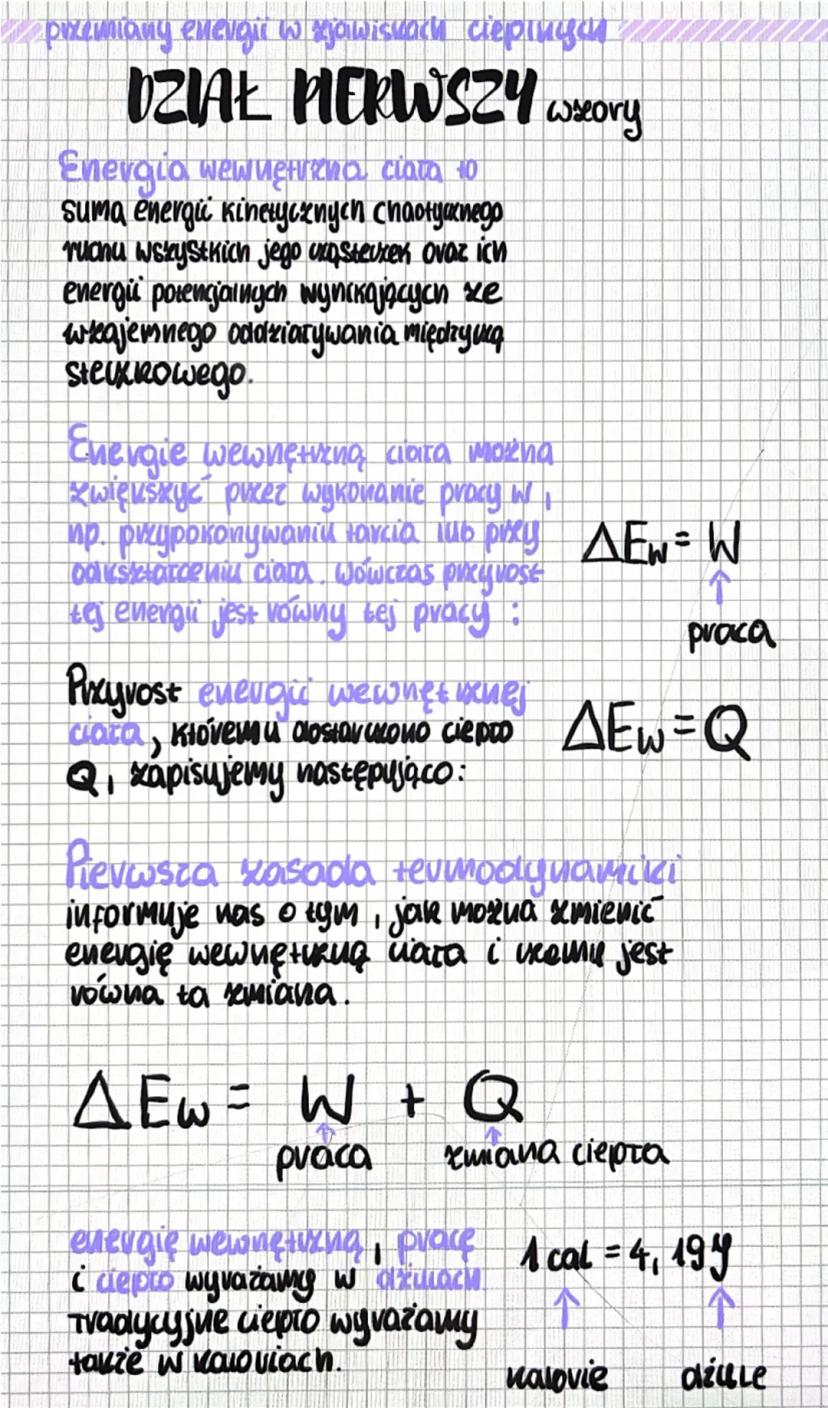 przemiany energii w zjawiskach cieplnych
DZIAŁ PIERWSZY wzory
Energia wewnętrzna ciała to
suma energii kinetycznych chaotycznego
ruchu wszystkich jego cząsteczek oraz ich
energii potencjalnych wynikających ze
wzajemnego oddziaływania międzyczą
steczkowego.
Energie wewnętrzną ciała można
zwiększyć przez wykonanie pracy W,
np. przypokonywaniu tarcia lub przy
odkształceniu ciała. Wówczas przyrost
tej energii jest równy tej pracy :
ΔEw = W
↑
praca
Przyrost energii wewnętrznej
ciała, któremu dostarczono ciepło
Q, zapisujemy następująco:
ΔEw = Q
Pierwsza zasada termodynamiki
informuje nas o tym, jak można zmienić
energię wewnętrzną ciała i czemu jest
równa ta zmiana.
ΔEw = W + Q
↑ ↑
praca zmiana ciepła
energię wewnętrzną, pracę
i ciepło wyrażamy w dżulach
Tradycyjnie ciepło wyrażamy
także w kaloriach.
1 cal = 4,19 J
↑ ↑
kalorie dżule